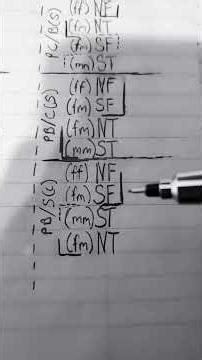 PC/B(S)
(ff) NF
(fm) NT
(fm) SF
(mm) ST
PB/C(S)
(ff) NF
(fm) SF
(fm) NT
(mm) ST
PB/S(C)
(ff) NF
(fm) SF
(mm) ST
(fm) NT